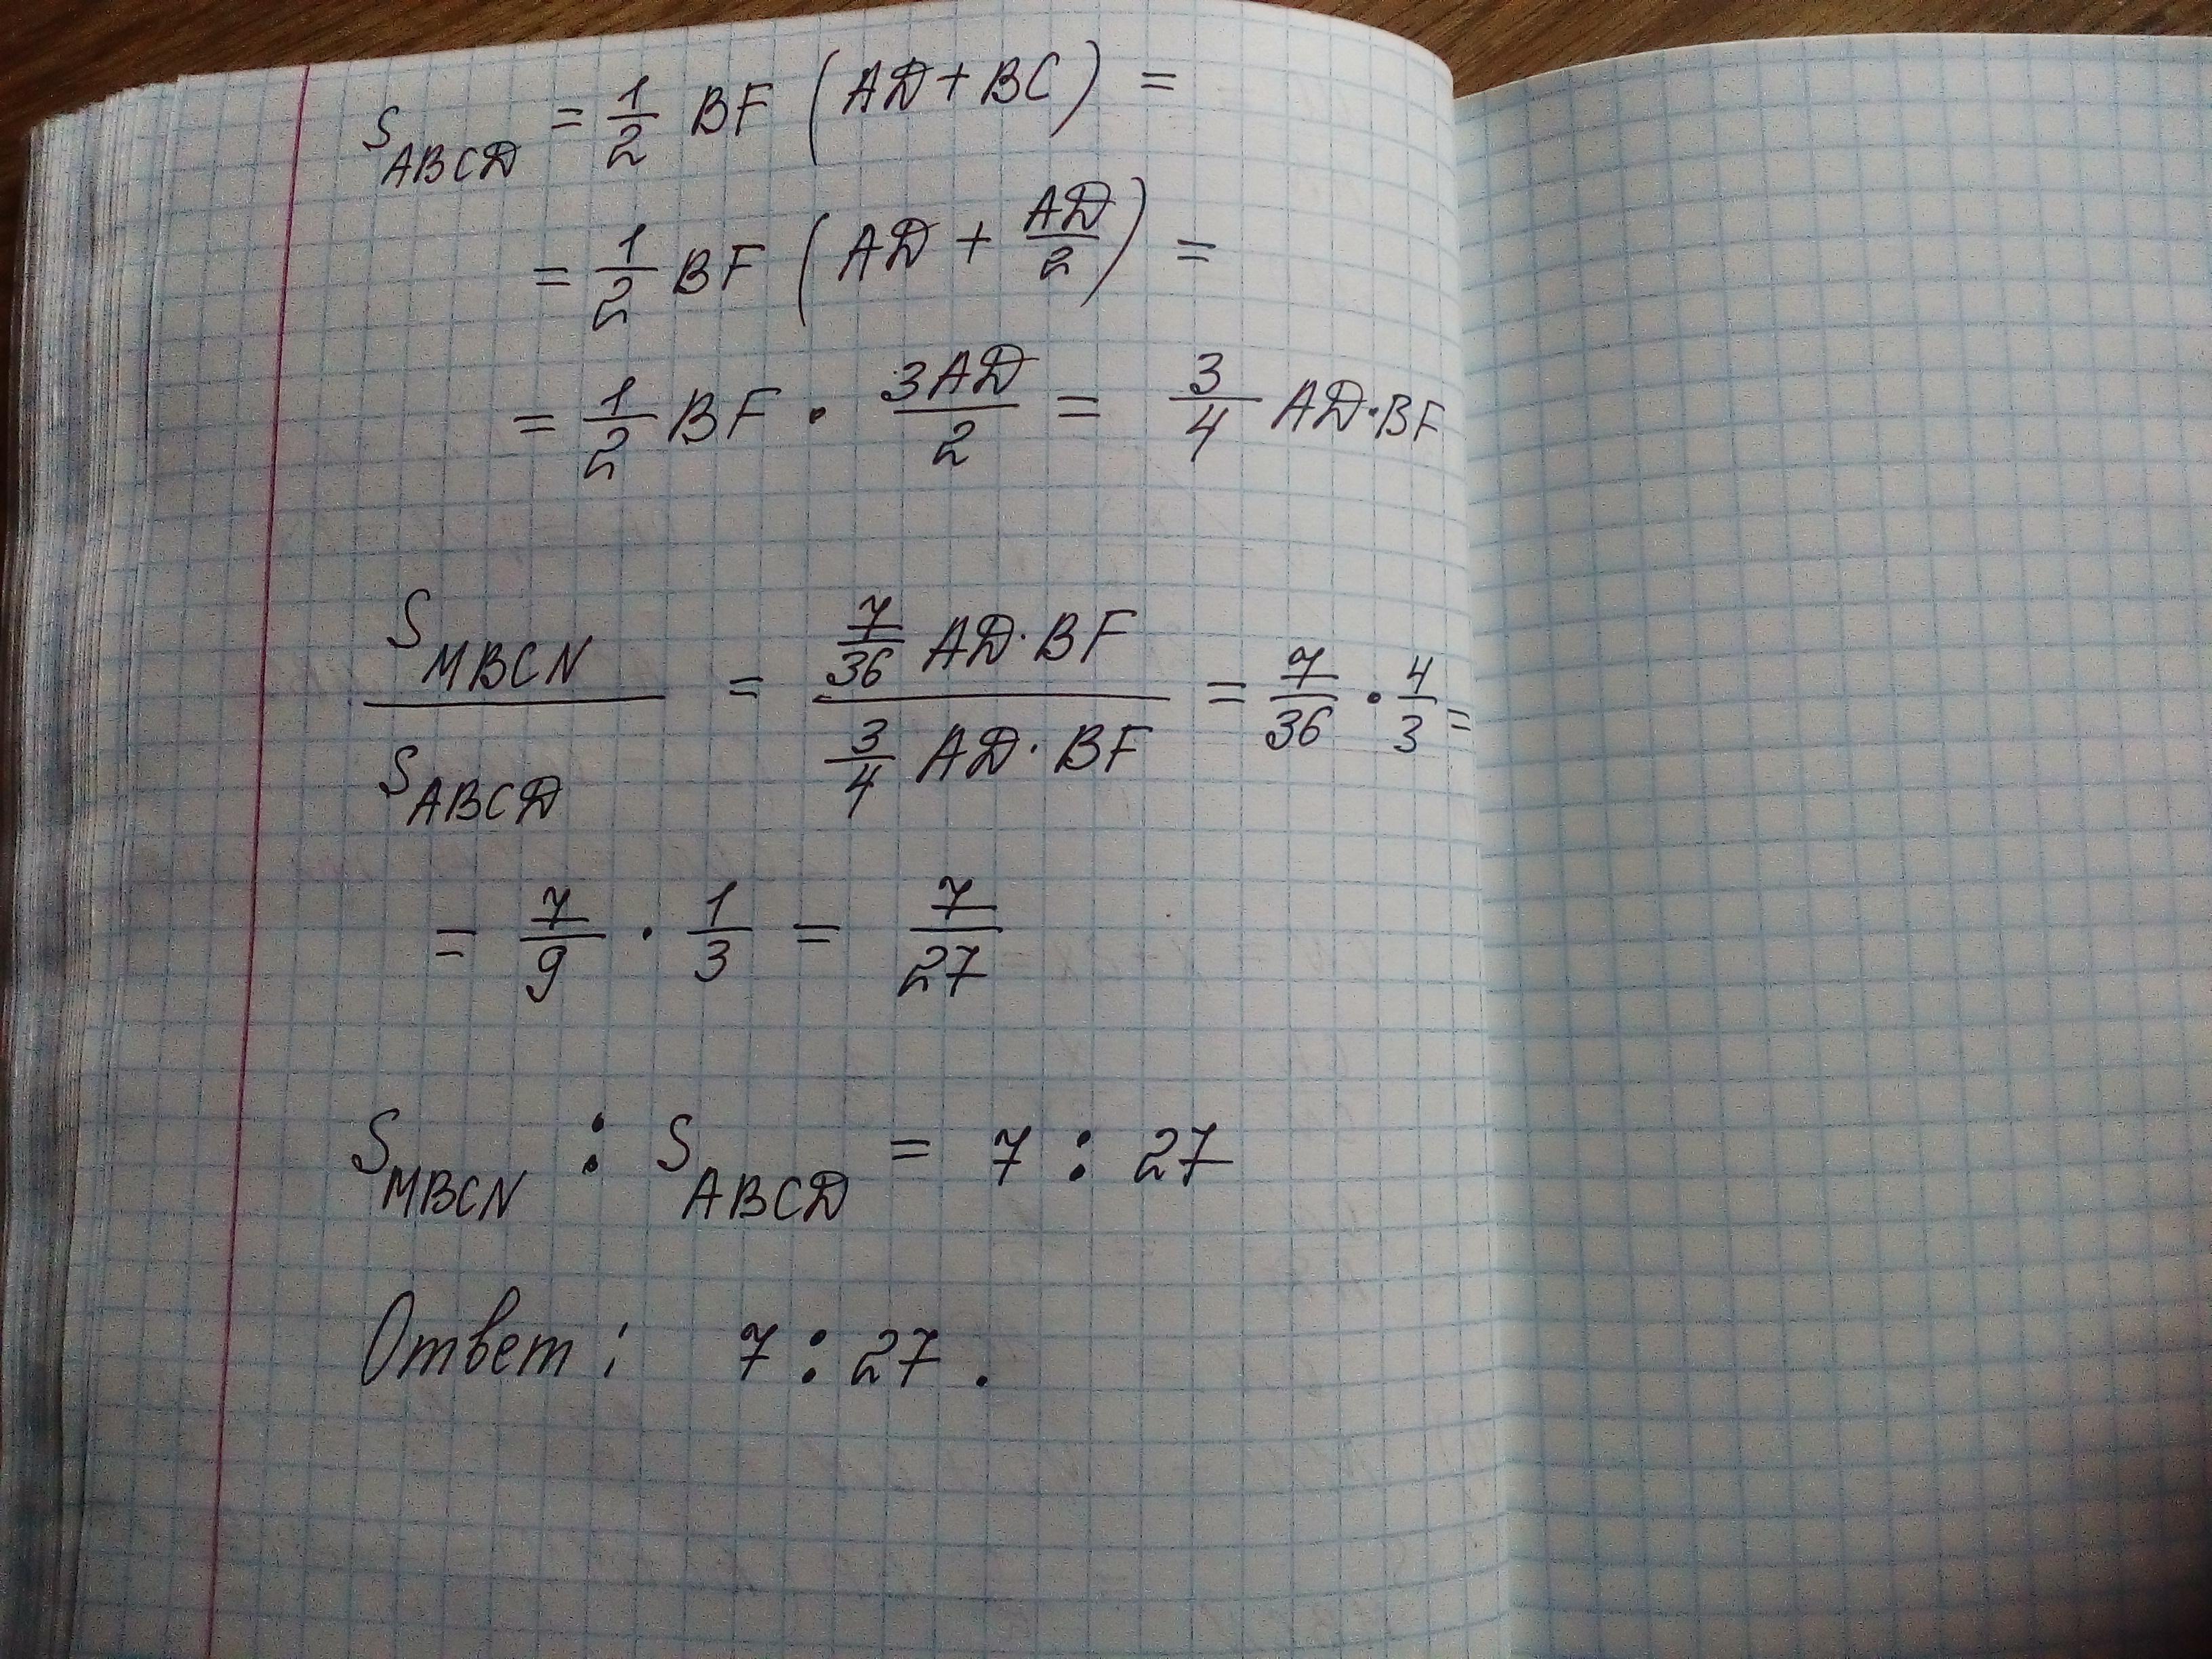 S_ABCD = 1/2 BF (AD + BC) =
= 1/2 BF (AD + AD/2) =
= 1/2 BF · 3AD/2 = 3/4 AD·BF
S_MBCN / S_ABCD = (7/36 AD·BF) / (3/4 AD·BF) = 7/36 · 4/3 =
= 7/9 · 1/3 = 7/27
S_MBCN : S_ABCD = 7 : 27
Ответ: 7 : 27.